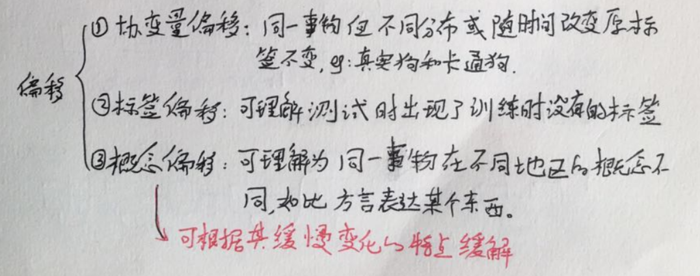 偏移
①协变量偏移：同一事物但不同分布或随时间改变原标
签不变，eg：真实狗和卡通狗.
②标签偏移：可理解测试时出现了训练时没有的标签
③概念偏移：可理解为同一事物在不同地区的概念不
同，如比方言表达某个东西。
可根据其缓慢变化的特点缓解